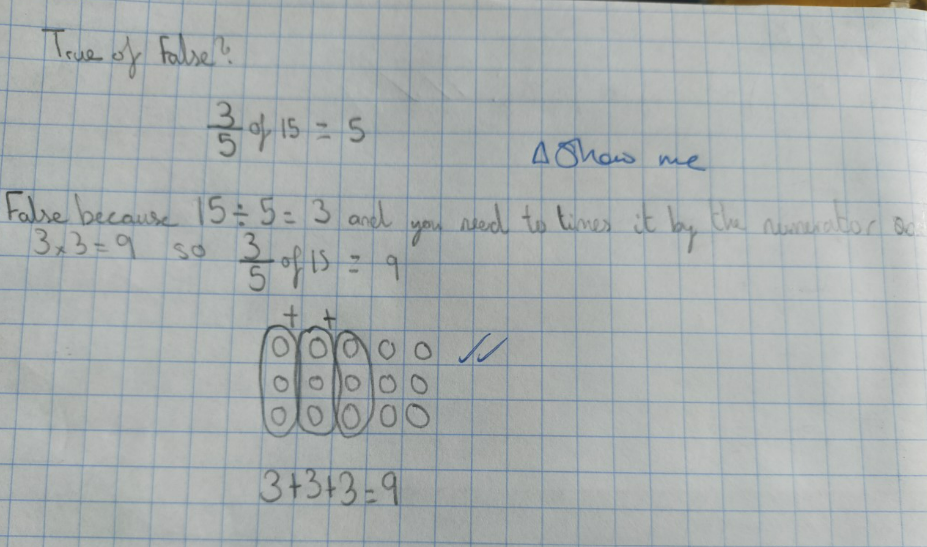 True of False?
3/5 of 15 = 5
Δ Show me
False because 15 ÷ 5 = 3 and you need to times it by the numerator so
3 x 3 = 9 so 3/5 of 15 = 9
+ +
3+3+3=9